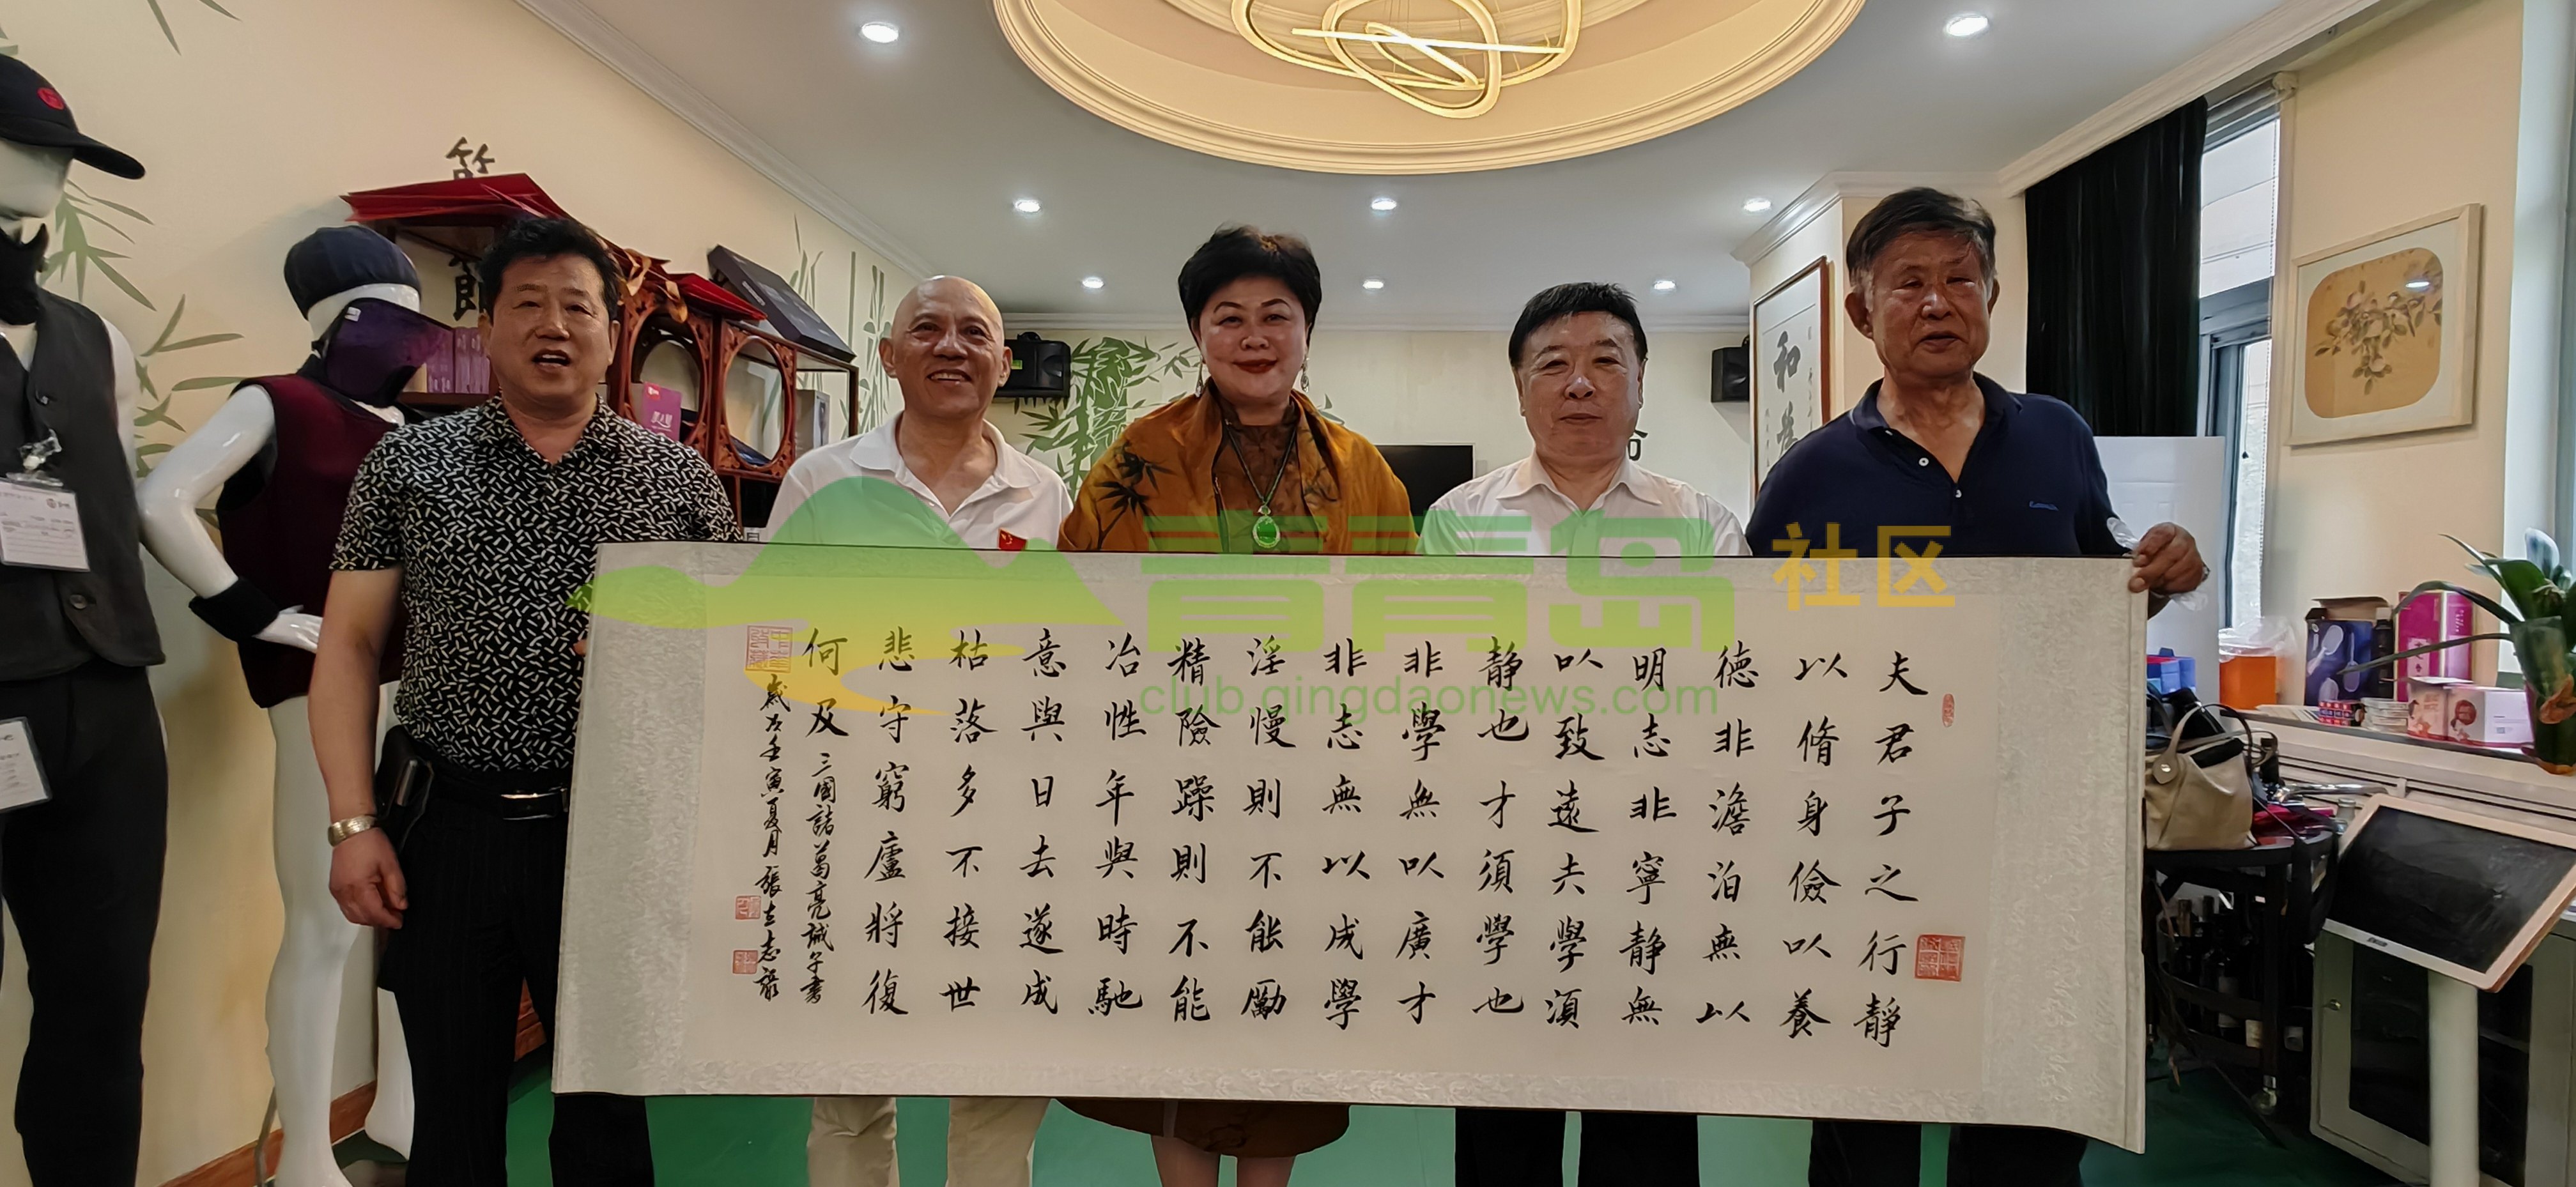 夫君子之行靜
以脩身儉以養
德非澹泊無以
明志非寧靜無
以致遠夫學須
靜也才須學也
非學無以廣才
非志無以成學
淫慢則不能勵
精險躁則不能
冶性年與時馳
意與日去遂成
枯落多不接世
悲守窮廬將復
何及
三國諸葛亮誡子書
歲次壬寅夏月張立志敬
青青岛社区
club.qingdaonews.com
和
節